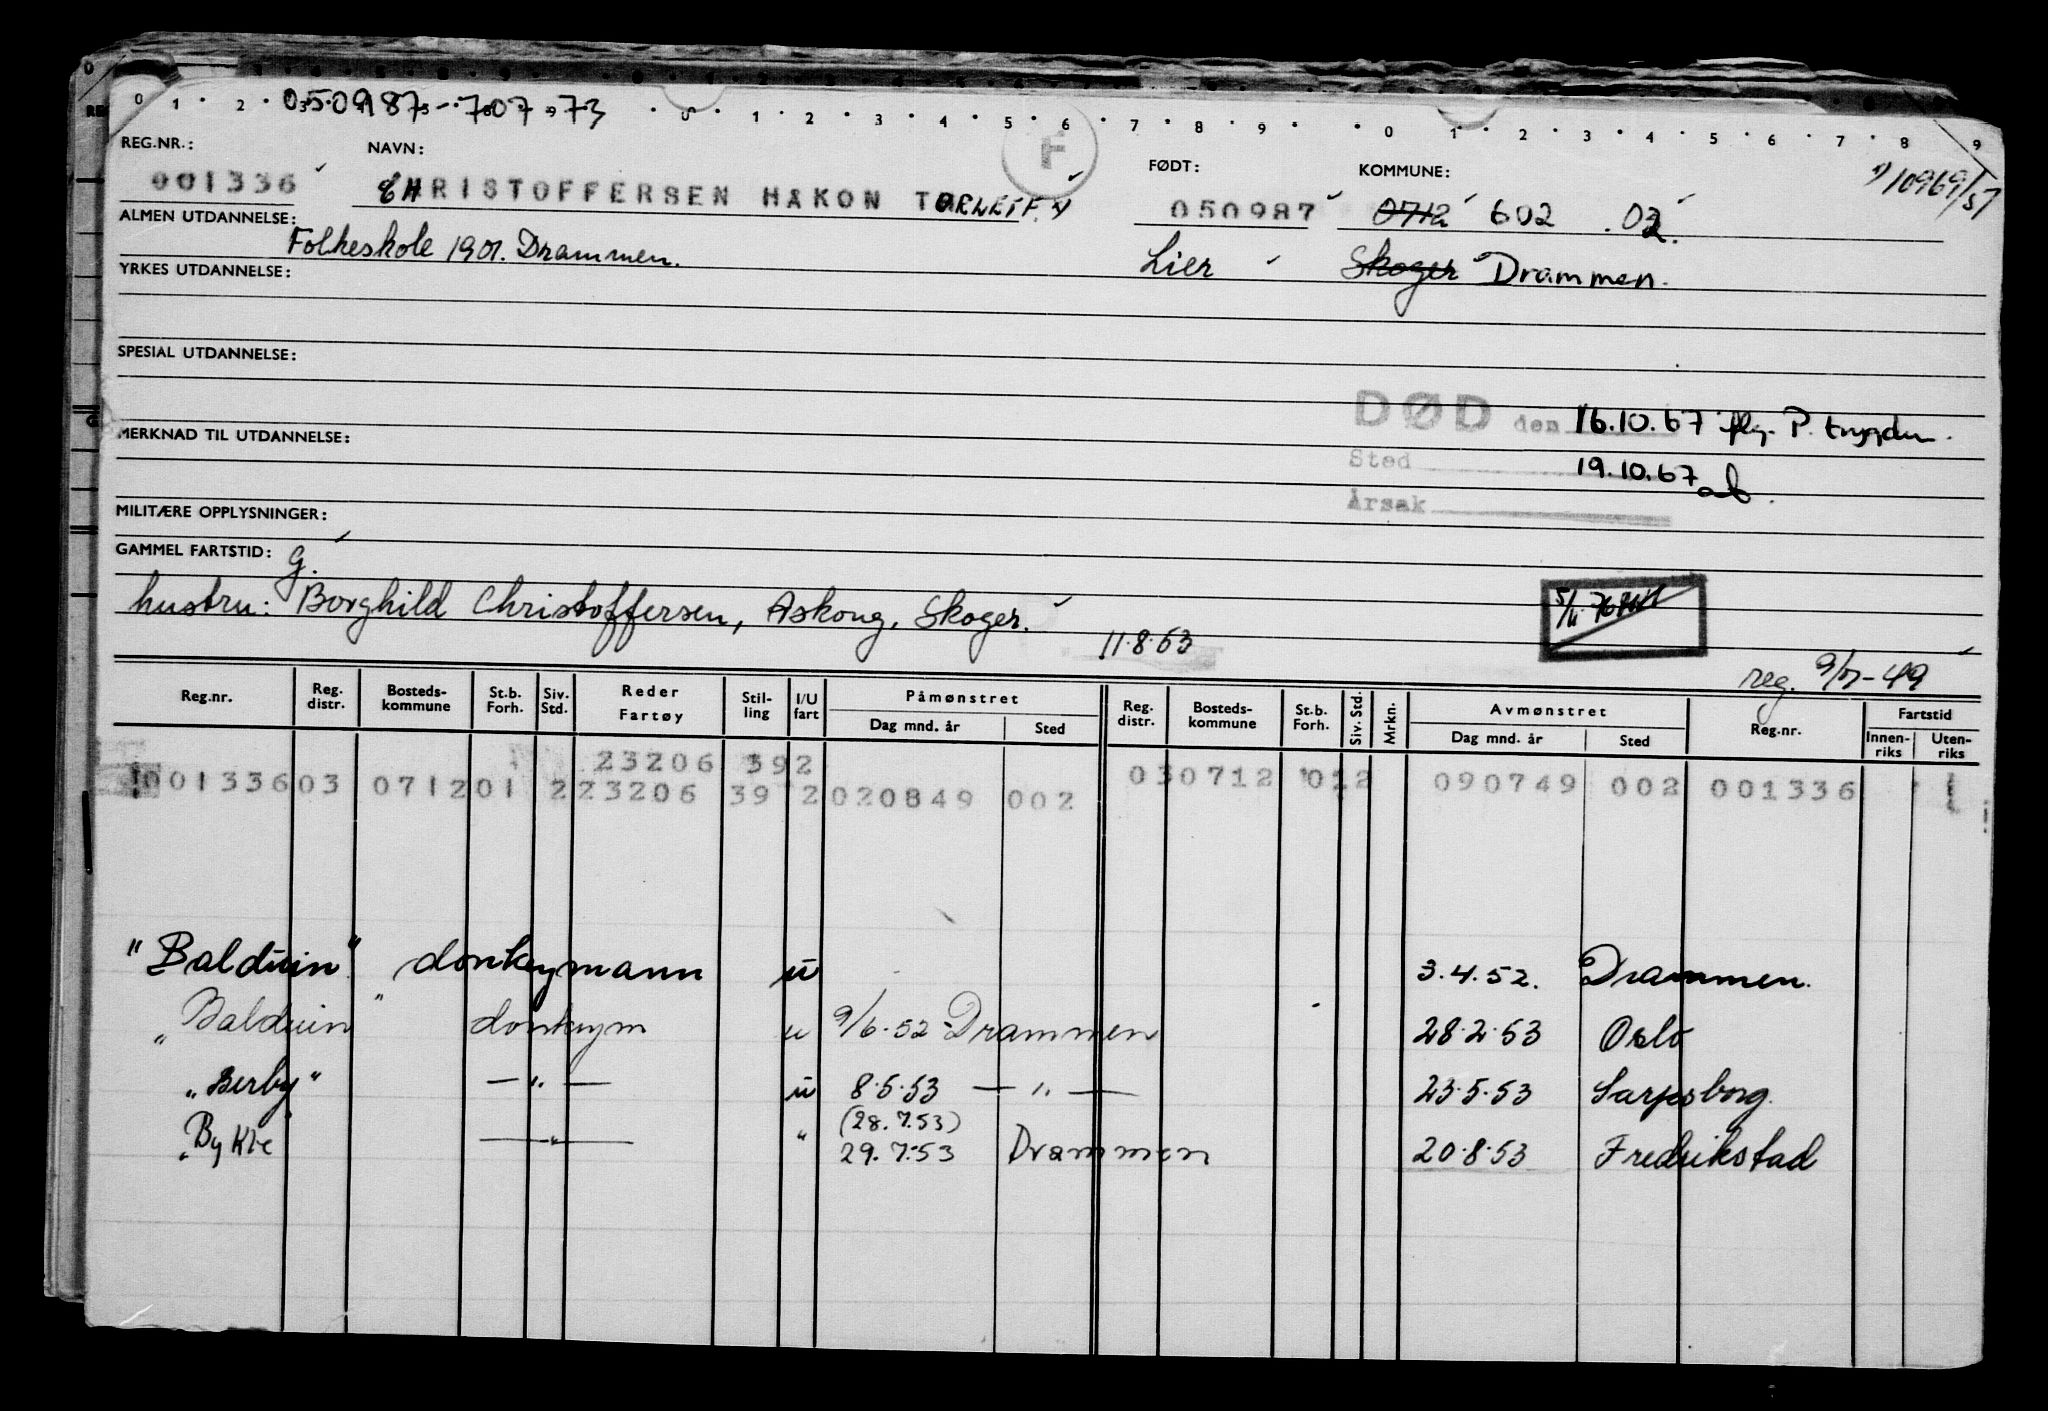 0 1 2 050987-707 73 5 1 2 3 4 5 6 7 8 9 0 1 2 3 4 5 6 7 8 9
REG.NR.: NAVN: F FØDT: KOMMUNE: 10969/57
001336 CHRISTOFFERSEN HAKON TORLEIF. 050987 0712 602 .02.
ALMEN UTDANNELSE: Folkeskole 1901. Drammen. Lier Skoger Drammen.
YRKES UTDANNELSE:
SPESIAL UTDANNELSE:
DØD den 16.10.67 flg. P. trygden.
MERKNAD TIL UTDANNELSE:
Sted 19.10.67 ab.
Årsak
MILITÆRE OPPLYSNINGER:
GAMMEL FARTSTID: G.
hustru: Borghild Christoffersen, Askong, Skoger.
11.8.53
reg. 9/7-49
Reg.nr. Reg. distr. Bosteds-kommune St.b. Forh. Siv. Std. Reder Fartøy Stil-ling I/U fart Påmønstret Dag mnd. år Sted Reg. distr. Bosteds-kommune St.b. Forh. Siv. Std. Mrkn. Avmønstret Dag mnd. år Sted Reg.nr. Fartstid Innen-riks Uten-riks
23206 392 030712 012 090749 002 001336
001336 03 0712 01 2 23206 39 2 020849 002
"Balduin" donkeymann u 3.4.52. Drammen.
"Balduin" donkeym u 9/6.52 - Drammen 28.2.53 Oslo
"Berby" — " — u 8.5.53 — " — 23.5.53 Sarpsborg.
(28.7.53)
"Bykle — " — " 29.7.53 Drammen 20.8.53 Fredrikstad